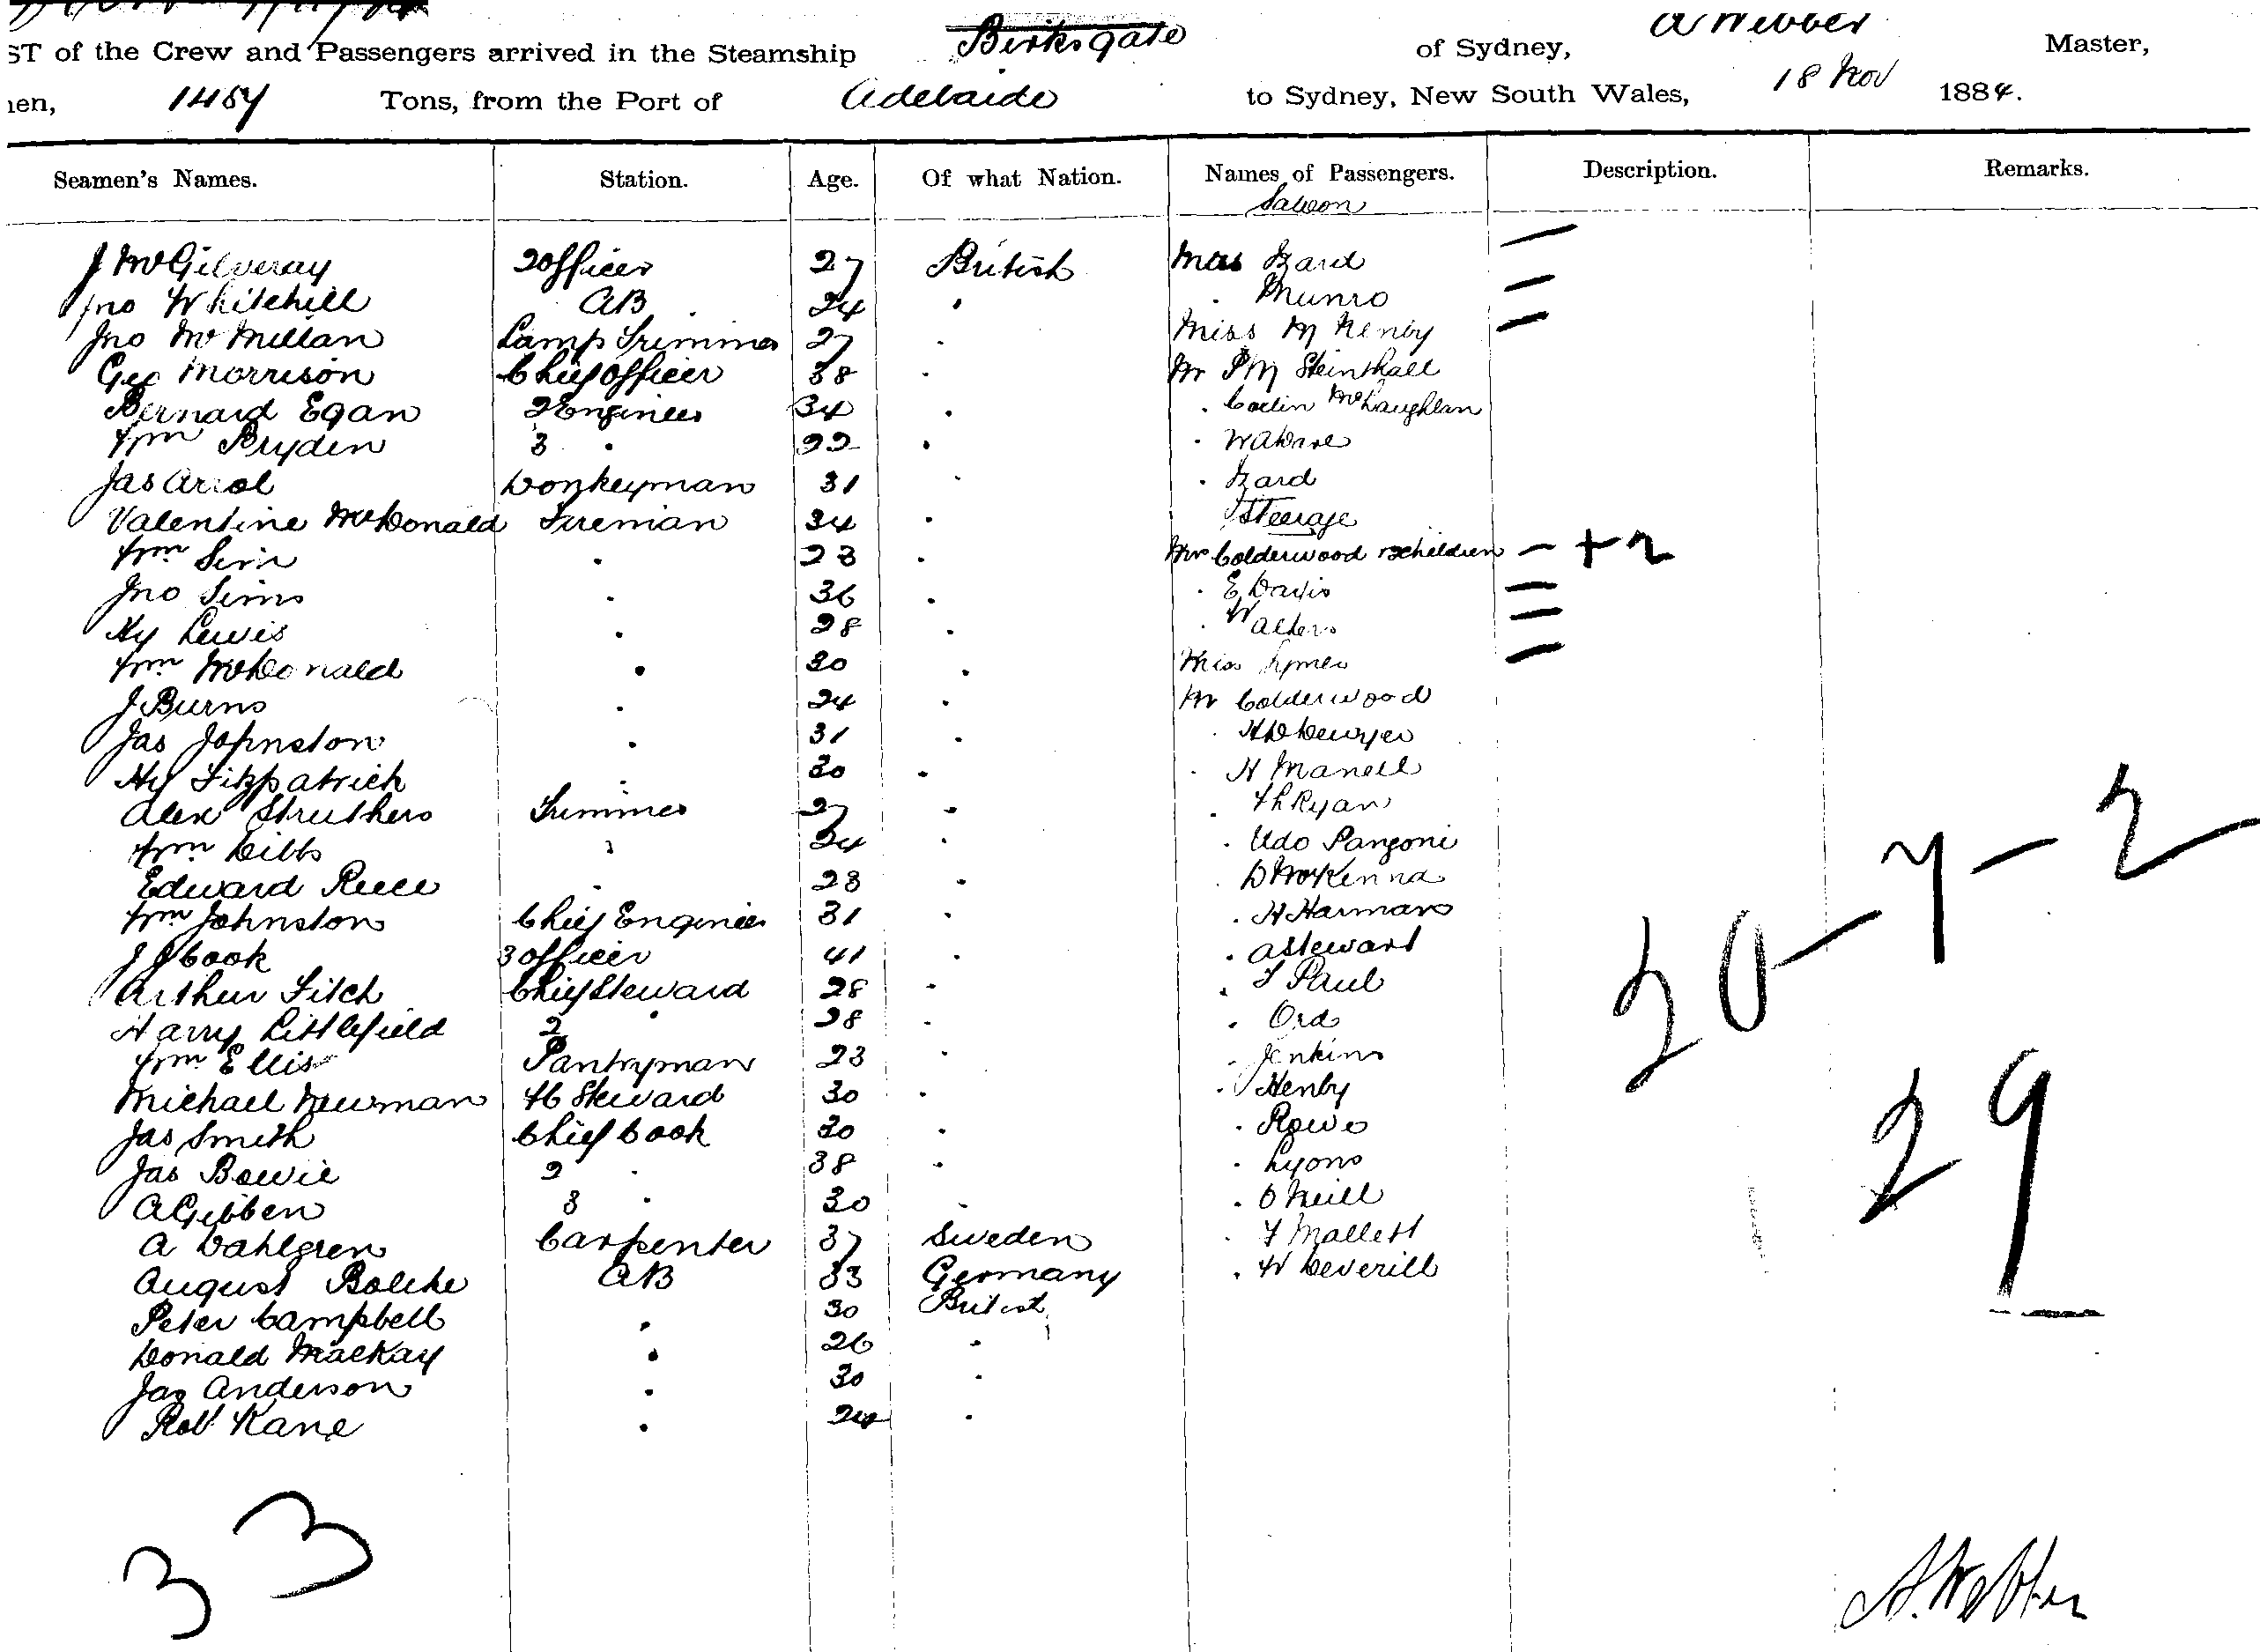 ST of the Crew and Passengers arrived in the Steamship Birksgate of Sydney, A Webber Master,
men, 1459 Tons, from the Port of Adelaide to Sydney, New South Wales, 18 Nov 1884.
Seamen's Names. Station. Age. Of what Nation. Names of Passengers. Description. Remarks.
Saloon
J McGilveray 2 Officer 27 British Mrs Izard —
Jno Whitehill AB 24 " " Munro —
Jno McMillan Lamp Trimmer 27 " Miss M Henby —
Geo Morrison Chief Officer 38 " Mr P M Steinthall
Bernard Egan 2 Engineer 34 " " Colin McLaughlan
Wm Bryden 3 " 22 " " W A Ware
Jas Arrol Donkeyman 31 " " Izard
Valentine McDonald Fireman 34 " Steerage
Wm Sim " 23 " Mrs Colderwood & 2 children — + 2
Jno Sims " 36 " " E Davis —
Hy Lewis " 28 " " Walters —
Wm McDonald " 30 " Miss Symes —
J Burns " 24 " Mr Colderwood
Jas Johnston " 31 " " H D Dewyer
Hy Fitzpatrick " 30 " " H Manell
Alex Struthers Trimmer 27 " " Th Ryan
Wm Dibbs " 24 " " Udo Panzoni
Edward Reece " 23 " " D McKenna
Wm Johnston Chief Engineer 31 " " H Harman
J J Cook 3 Officer 41 " " A Stewart
Arthur Fitch Chief Steward 28 " " F Paul
Harry Littlefield 2 " 28 " " Ord
Wm Ellis Pantryman 23 " " Jenkins
Michael Newman FC Steward 30 " " Henby
Jas Smith Chief Cook 30 " " Rowe
Jas Bowie 2 " 38 " " Lyons
A Gibben 3 " 30 " " O'Neill
A Dahlgren Carpenter 37 Sweden " F Mallett
August Bolcke AB 33 Germany " W Deverill
Peter Campbell " 30 British
Donald MacKay " 26 "
Jas Anderson " 30 "
Rob Kane " 24 "
20 - 7 - 2
29
33
A. Webber